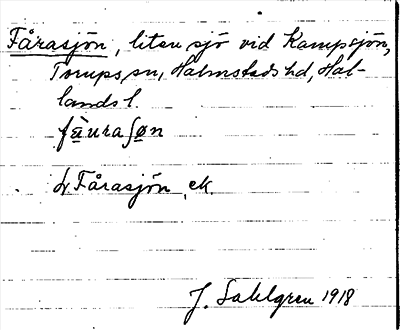 Fårasjön, liten sjö vid Kampsjön,
Torups sn, Halmstads hd, Hal-
lands l.
fàuraʃøn
Fårasjön, ek.
J. Sahlgren 1918